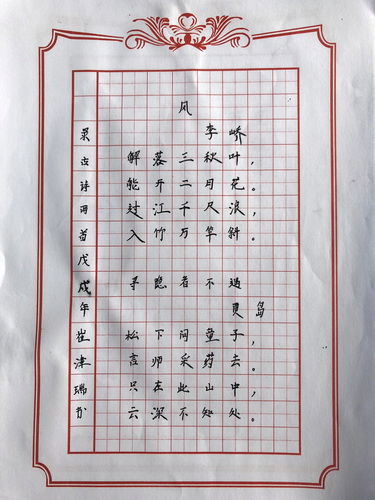 风
李峤
解落三秋叶，
能开二月花。
过江千尺浪，
入竹万竿斜。
寻隐者不遇
贾岛
松下问童子，
言师采药去。
只在此山中，
云深不知处。
录古诗两首戊戌年崔津瑞书